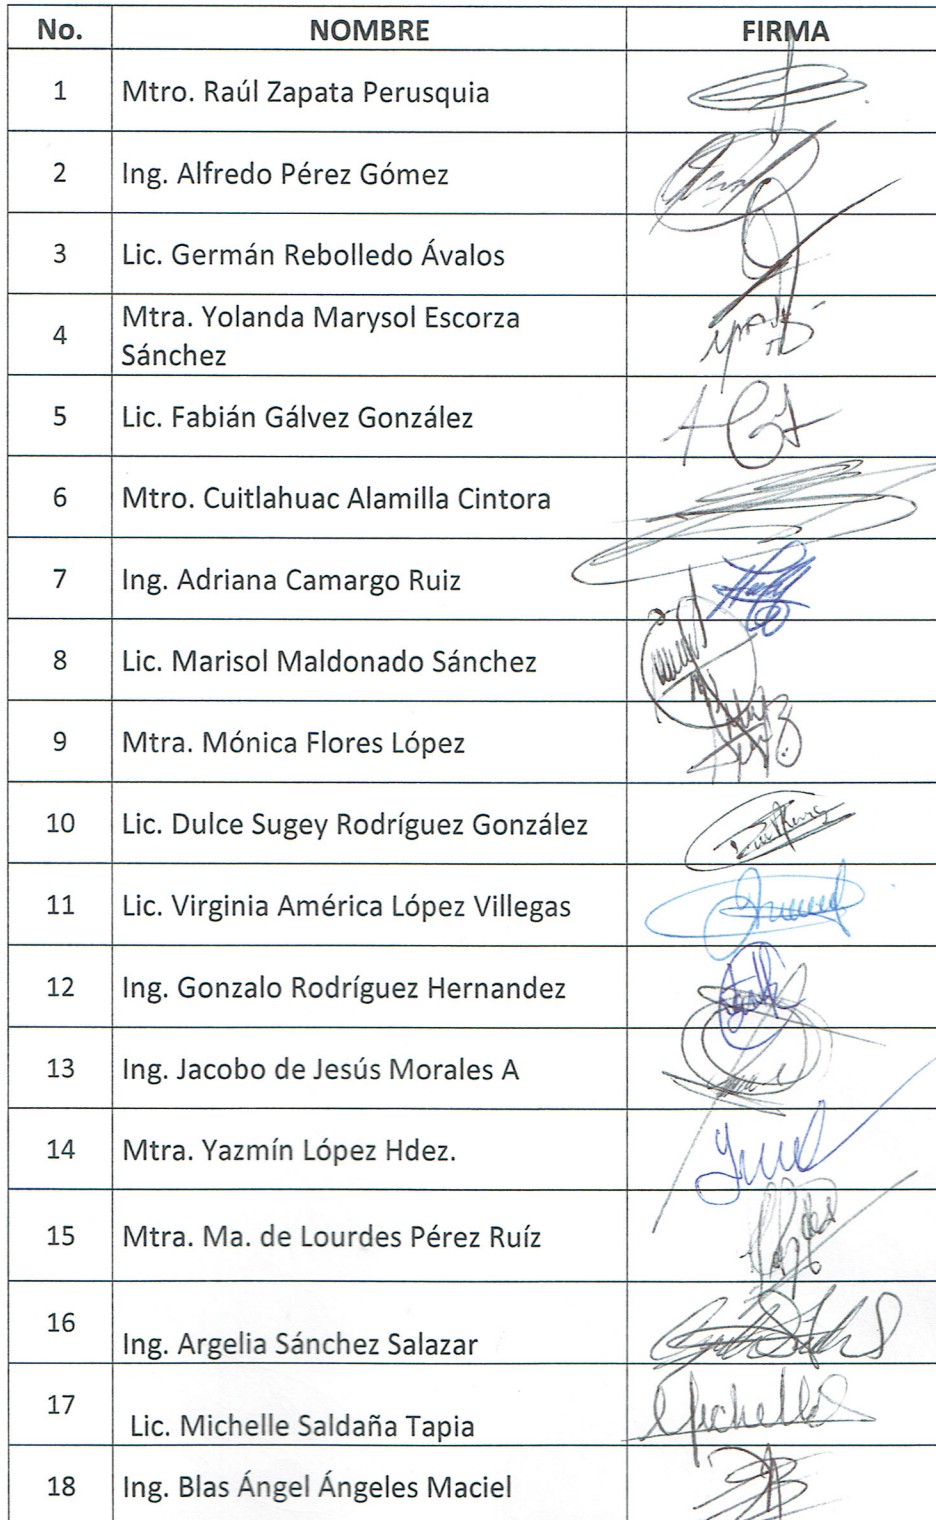 No. NOMBRE FIRMA
1 Mtro. Raúl Zapata Perusquia
2 Ing. Alfredo Pérez Gómez
3 Lic. Germán Rebolledo Ávalos
4 Mtra. Yolanda Marysol Escorza
Sánchez
5 Lic. Fabián Gálvez González
6 Mtro. Cuitlahuac Alamilla Cintora
7 Ing. Adriana Camargo Ruiz
8 Lic. Marisol Maldonado Sánchez
9 Mtra. Mónica Flores López
10 Lic. Dulce Sugey Rodríguez González
11 Lic. Virginia América López Villegas
12 Ing. Gonzalo Rodríguez Hernandez
13 Ing. Jacobo de Jesús Morales A
14 Mtra. Yazmín López Hdez.
15 Mtra. Ma. de Lourdes Pérez Ruíz
16 Ing. Argelia Sánchez Salazar
17 Lic. Michelle Saldaña Tapia
18 Ing. Blas Ángel Ángeles Maciel